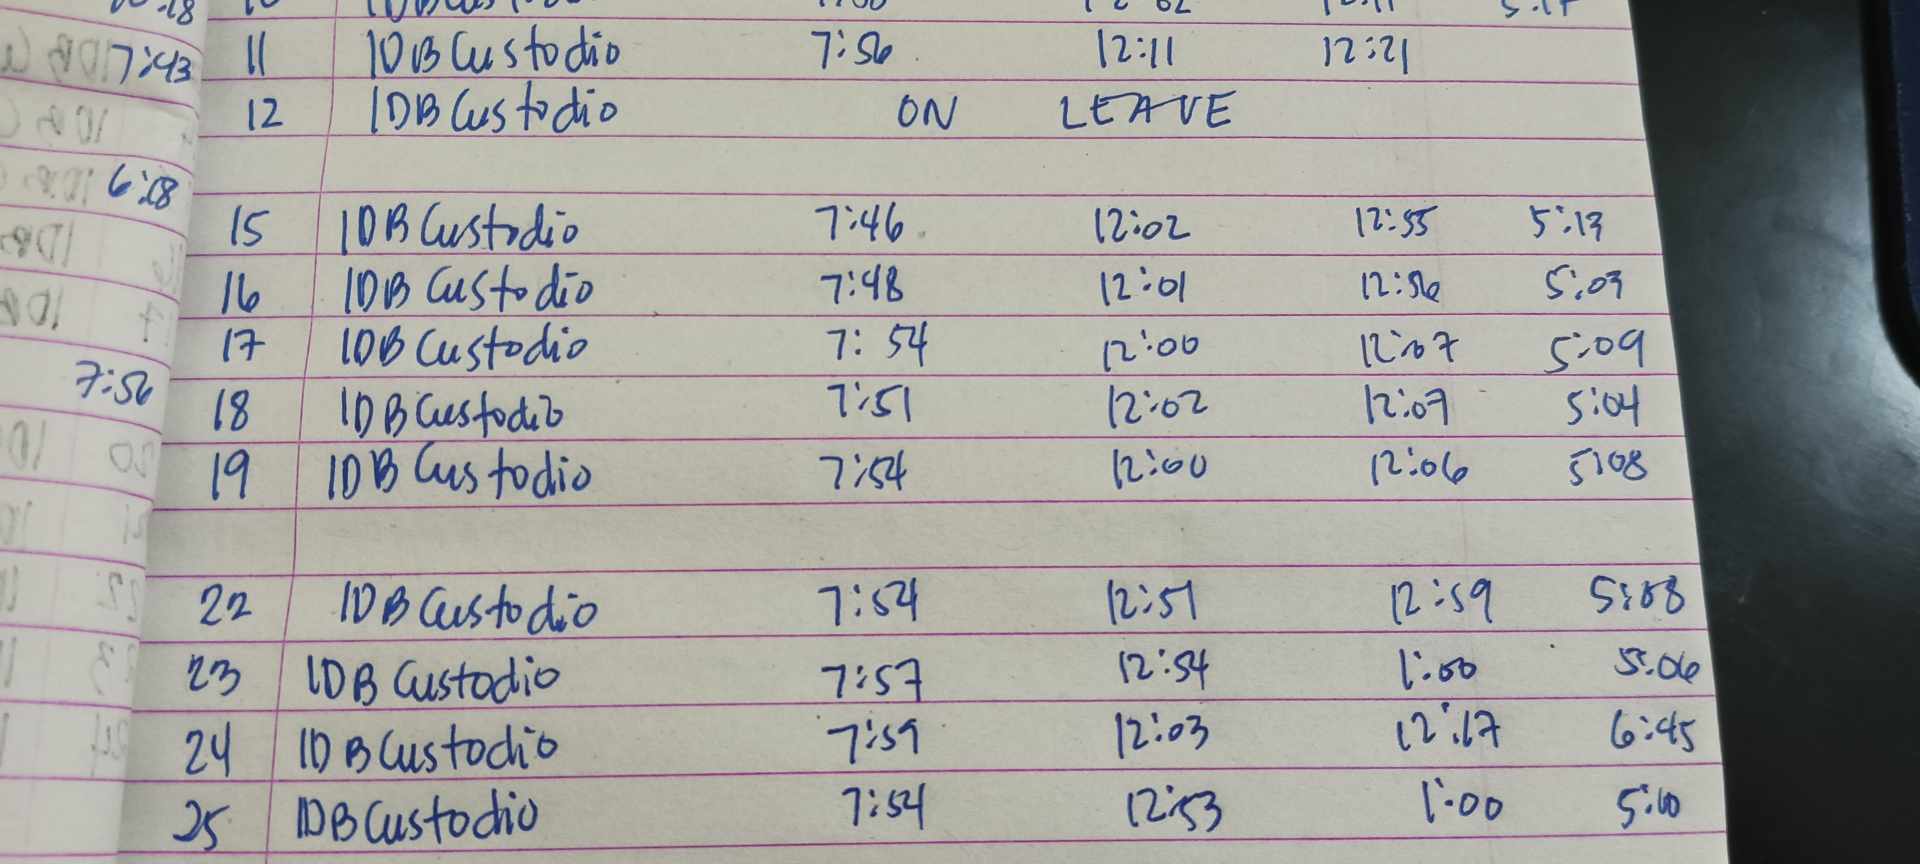 7:43
6:28
7:56
11 IDB Custodio 7:56 12:11 12:21
12 IDB Custodio ON LEAVE
15 IDB Custodio 7:46 12:02 12:55 5:13
16 IDB Custodio 7:48 12:01 12:56 5:03
17 IDB Custodio 7:54 12:00 12:07 5:09
18 IDB Custodio 7:51 12:02 12:07 5:04
19 IDB Custodio 7:54 12:00 12:06 5:08
22 IDB Custodio 7:54 12:51 12:59 5:08
23 IDB Custodio 7:57 12:54 1:00 5:06
24 IDB Custodio 7:59 12:03 12:17 6:45
25 IDB Custodio 7:54 12:53 1:00 5:10